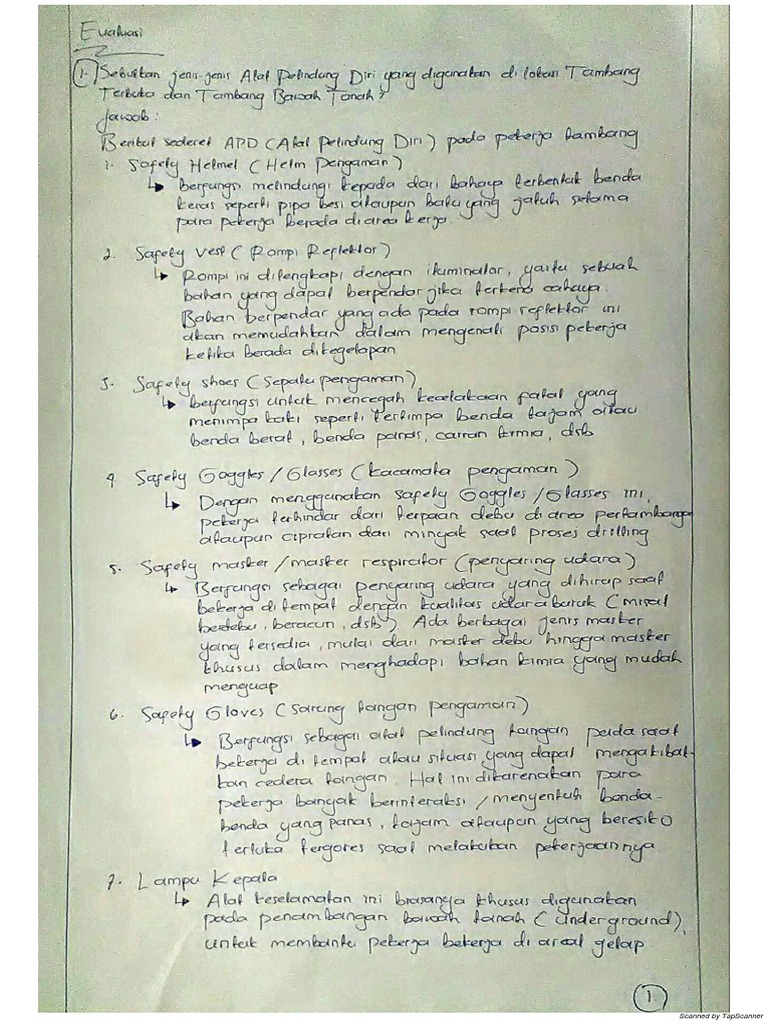 Evaluasi
1. Sebutkan jenis-jenis Alat Pelindung Diri yang digunakan di lokasi Tambang
Terbuka dan Tambang Bawah Tanah?
Jawab :
Berikut sederet APD (Alat Pelindung Diri) pada pekerja tambang
1. Safety Helmet (Helm Pengaman)
↳ Berfungsi melindungi kepada dari bahaya terbentuk benda
keras seperti pipa besi ataupun batu yang jatuh selama
para pekerja berada di area kerja.
2. Safety Vest (Rompi Reflektor)
↳ Rompi ini dilengkapi dengan iluminator, yaitu sebuah
bahan yang dapat berpendar jika terkena cahaya.
Bahan berpendar yang ada pada rompi reflektor ini
akan memudahkan dalam mengenali posisi pekerja
ketika berada dikegelapan
3. Safety shoes (Sepatu pengaman)
↳ Berfungsi untuk mencegah kecelakaan fatal yang
menimpa kaki seperti tertimpa benda tajam atau
benda berat, benda panas, cairan kimia, dsb
4. Safety Goggles / Glasses (kacamata pengaman)
↳ Dengan menggunakan safety Goggles / Glasses ini,
pekerja terhindar dari terpaan debu di area pertambangan
ataupun cipratan dari minyak saat proses drilling
5. Safety masker / masker respirator (penyaring udara)
↳ Berfungsi sebagai penyaring udara yang dihirup saat
bekerja di tempat dengan kualitas udara buruk (misal
berdebu, beracun, dsb) Ada berbagai jenis masker
yang tersedia, mulai dari masker debu hingga masker
khusus dalam menghadapi bahan kimia yang mudah
menguap
6. Safety Gloves (Sarung tangan pengaman)
↳ Berfungsi sebagai alat pelindung tangan pada saat
bekerja di tempat atau situasi yang dapat mengakibat-
kan cedera tangan. Hal ini dikarenakan para
pekerja banyak berinteraksi / menyentuh benda-
benda yang panas, tajam ataupun yang beresiko
terluka tergores saat melakukan pekerjaannya.
7. Lampu Kepala
↳ Alat keselamatan ini biasanya khusus digunakan
pada penambangan bawah tanah (underground),
untuk membantu pekerja bekerja di areal gelap
1
Scanned by TapScanner